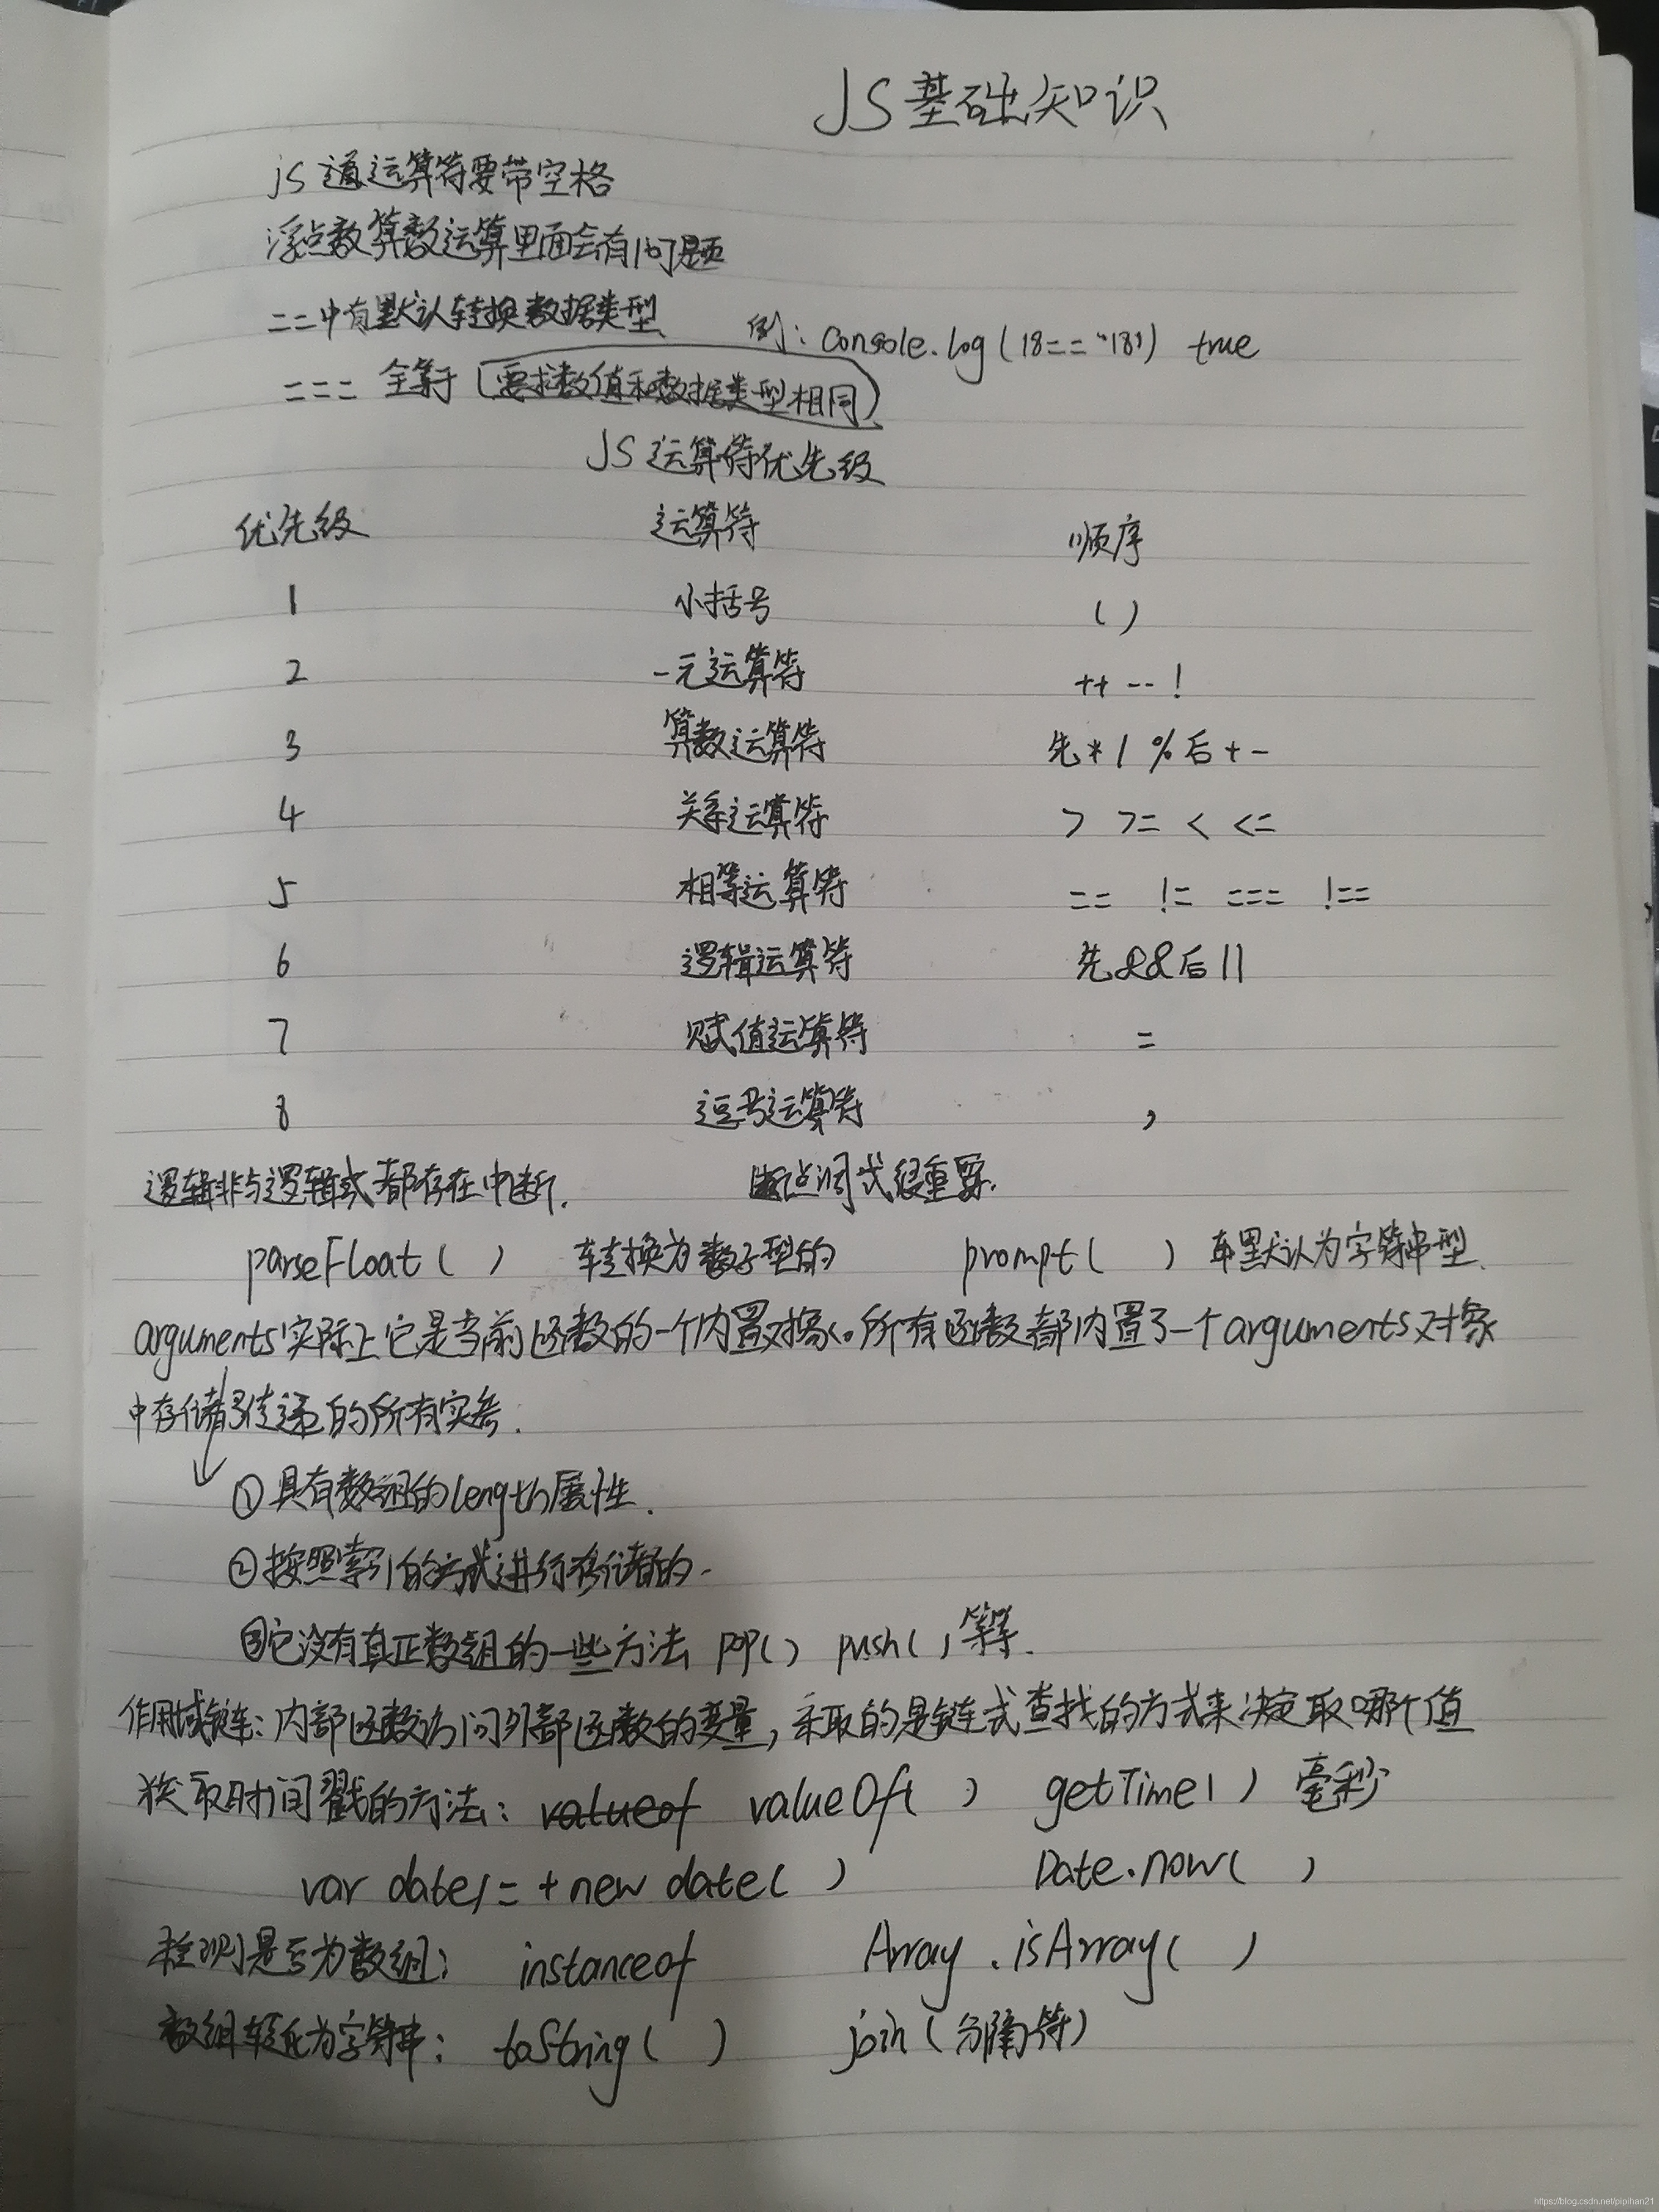 JS基础知识
js 遇运算符要带空格
浮点数算数运算里面会有问题
==中有默认转换数据类型 例: console.log(18=="18") true
=== 全等于(要求数值和数据类型相同)
JS 运算符优先级
优先级 运算符 顺序
1 小括号 ()
2 一元运算符 ++ -- !
3 算数运算符 先 * / % 后 + -
4 关系运算符 > >= < <=
5 相等运算符 == != === !==
6 逻辑运算符 先&&后||
7 赋值运算符 =
8 逗号运算符 ,
逻辑非与逻辑或都存在中断. 断点调式很重要.
parseFloat( ) 转换为数字型的 prompt( ) 默认为字符串型.
arguments实际上它是当前函数的一个内置对象。所有函数都内置了一个arguments对象
中存储了传递的所有实参.
①具有数组的length属性.
②按照索引的方式进行存储的.
③它没有真正数组的一些方法 pop() push()等等.
作用域链: 内部函数访问外部函数的变量, 采取的是链式查找的方式来决定取哪个值
获取时间戳的方法: valueof valueOf( ) getTime( ) 毫秒
var date1 = + new date( ) Date.now( )
检测是否为数组: instanceof Array.isArray( )
数组转化为字符串: toString( ) join(分隔符)
https://blog.csdn.net/pipihan21